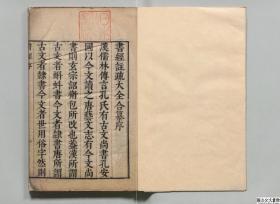 書經註疏大全合纂序
漢儒林傳言孔氏有古文尚書孔安
國以今文讀之唐藝文志有今文尚
書則玄宗詔衛包所改也蓋漢所謂
古文者蝌蚪書今文者隸書唐所謂
古文者隸書今文者世用俗字然則